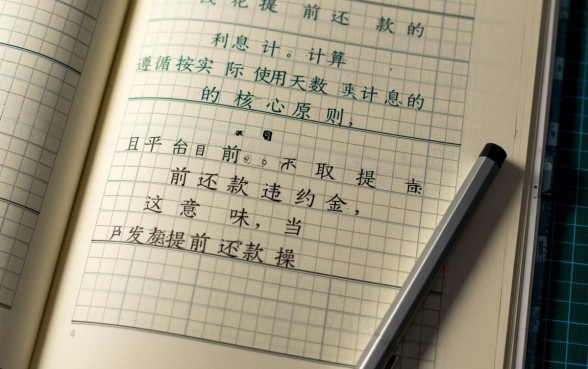 花 提 前还 款 的
利息 计。计算
遵循按实 际 使用天数 计息的
的 核 心 原 则,
且平台目 前 不 取 提
前还款违约金,
这意 味,当
户发 提前还款操